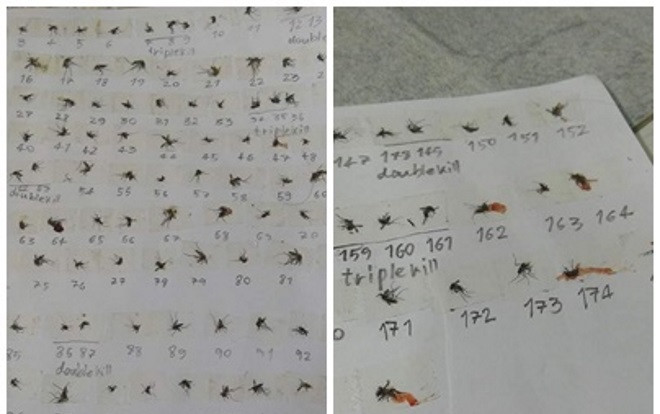 3 4 5 6 7 8 9 10 11 12 13
triplekill
double
16 17 18 19 20 21 22 23
27 28 29 30 31 32 33 34 35 36
triplekill
40 41 42 43 44 45 46 47 48
doublekill
54 55 56 57 58 59 60
63 64 65 66 67 68 69 70
75 76 77 78 79 80 81
85 86 87 88 89 90 91 92
doublekill
147 148 149 150 151 152
doublekill
159 160 161 162 163 164
triplekill
171 172 173 174